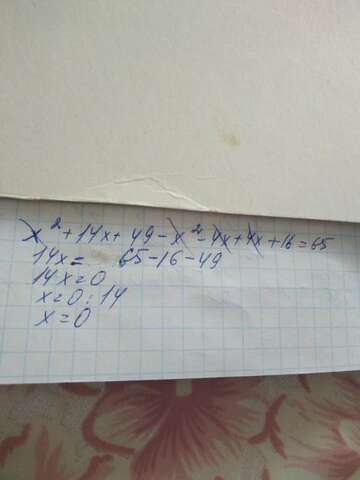 x² + 14x + 49 - x² - 4x + 4x + 16 = 65
14x = 65 - 16 - 49
14x = 0
x = 0 : 14
x = 0